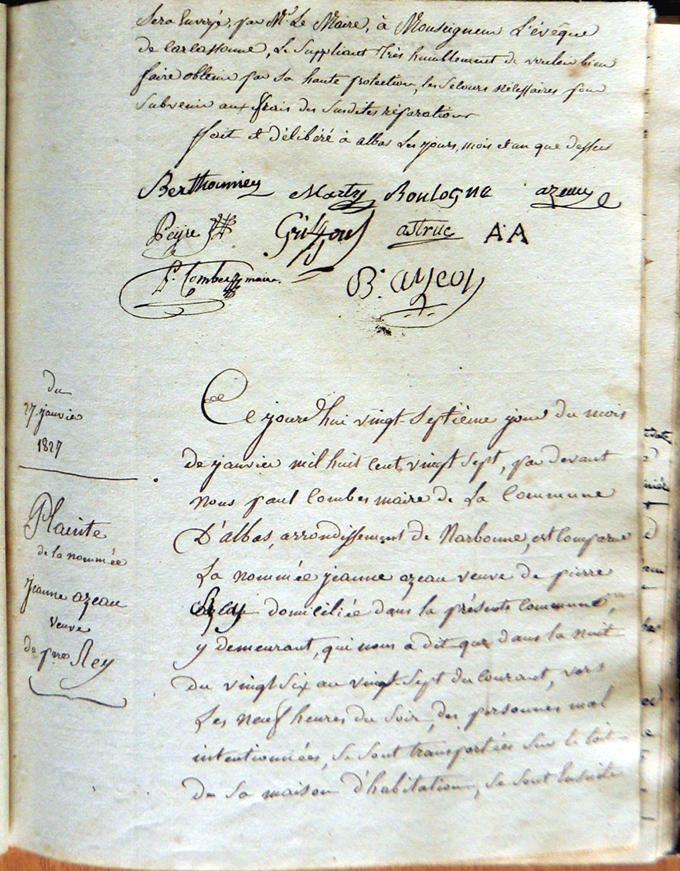 sera Envoyé, par Mr Le Maire, à Monseigneur L'évêque
de Carcassonne, Le Suppliant très humblement de vouloir bien
faire obtenir par sa haute protection, les secours nécessaires pour
Subvenir aux frais des susdites réparations
fait et délibéré à albas Les jours, mois et an que dessus
Berthoumieu Marty BouLogne azeau
Peyre Griffoul astruc AA
P. Combes maire. B.
du
27 janvier
1827
Plainte
de la nommée
jeanne azeau
veuve
de pre Rey
Ce jourd'hui vingt Septième jour du mois
de janvier mil huit cent vingt Sept, par devant
nous paul Combes maire de La Commune
D'albas, arrondissement de Narbonne, est comparue
La nommée jeanne azeau veuve de pierre
Rey domiciliée dans la présente Commune,
y demeurant, qui nous a dit que dans la nuit
du vingt six au vingt-sept du Courant, vers
Les neuf heures du Soir, des personnes mal
intentionnées, se sont transportées sur le toit
De sa maison d'habitation, se sont Ensuite